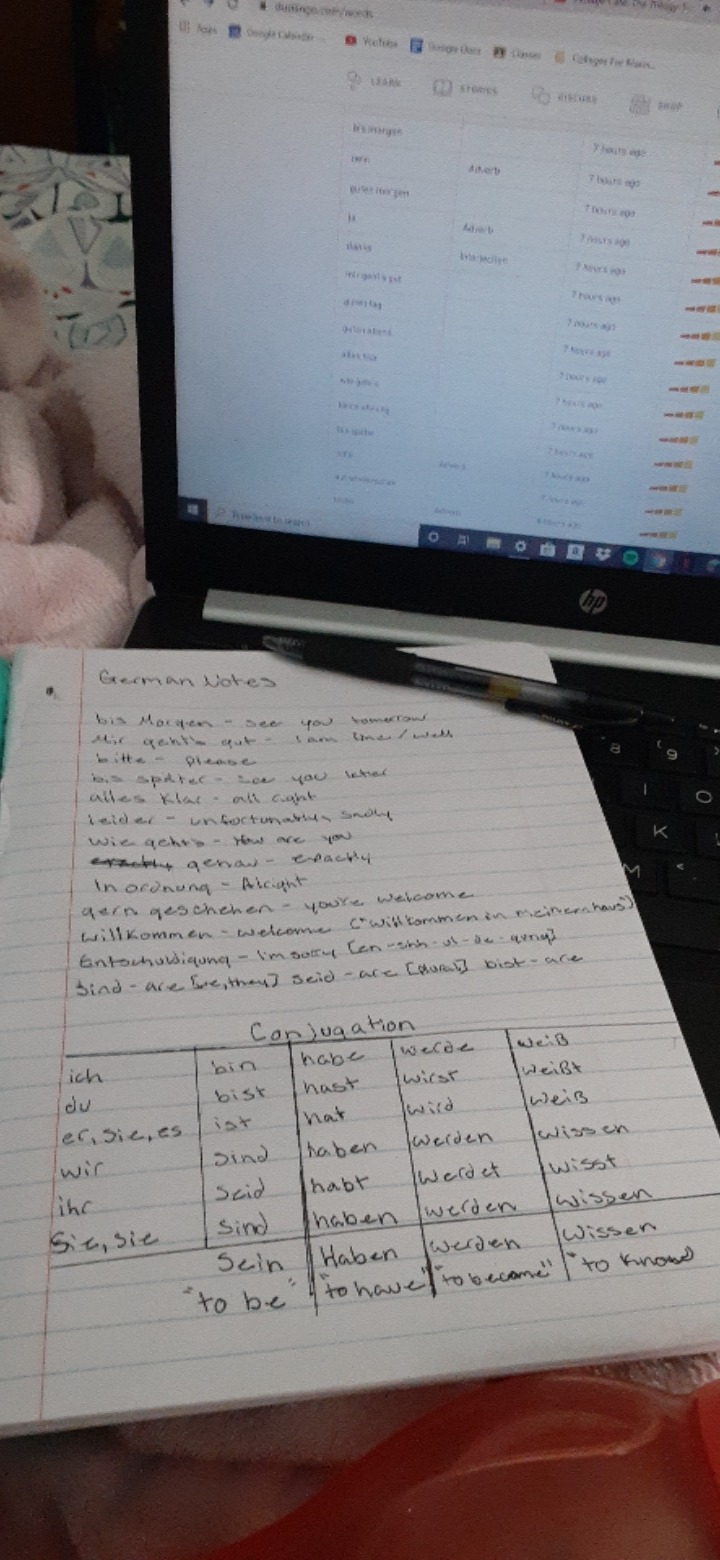 duolingo.com/words
Apps Google Calendar ... YouTube Google Docs Classes Colleges For
LEARN STORIES DISCUSS SHOP
bis morgen 7 hours ago
Adverb 7 hours ago
guten morgen 7 hours ago
ja Adverb 7 hours ago
danke Interjection 7 hours ago
mir geht's gut 7 hours ago
7 hours ago
guten abend 7 hours ago
alles klar 7 hours ago
7 hours ago
7 hours ago
bis später 7 hours ago
Adverb 7 hours ago
7 hours ago
Adverb
Type here to search
hp
German Notes
bis Morgen - see you tomorrow
Mir geht's gut - I am fine/well
bitte - please
bis später - see you later
alles Klar - all right
leider - unfortunately, sadly
wie geht's - How are you
exactly genau - exactly
In ordnung - Alright
gern geschehen - you're welcome
Willkommen - welcome ("willkommen in meinem haus")
Entschuldigung - I'm sorry [en-shh-ul-de-gung]
Sind - are [we, they] seid - are [plural] bist - are
Conjugation
ich bin habe werde weiß
du bist hast wirst weißt
er, sie, es ist hat wird weiß
wir sind haben werden wissen
ihr seid habt werdet wisst
Sie, sie sind haben werden wissen
Sein Haben werden wissen
"to be" "to have" "to become" "to know"
8 9
I O
K
M <